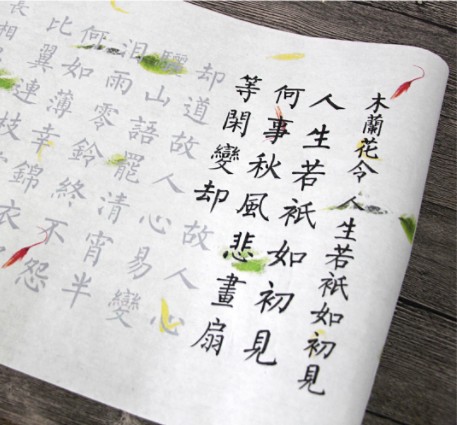 木蘭花令 人生若衹如初見
人生若衹如初見
何事秋風悲畫扇
等閑變却故人心
却道故人心易變
驪山語罷清宵半
泪雨零鈴終不怨
何如薄幸錦衣
比翼連枝
長相